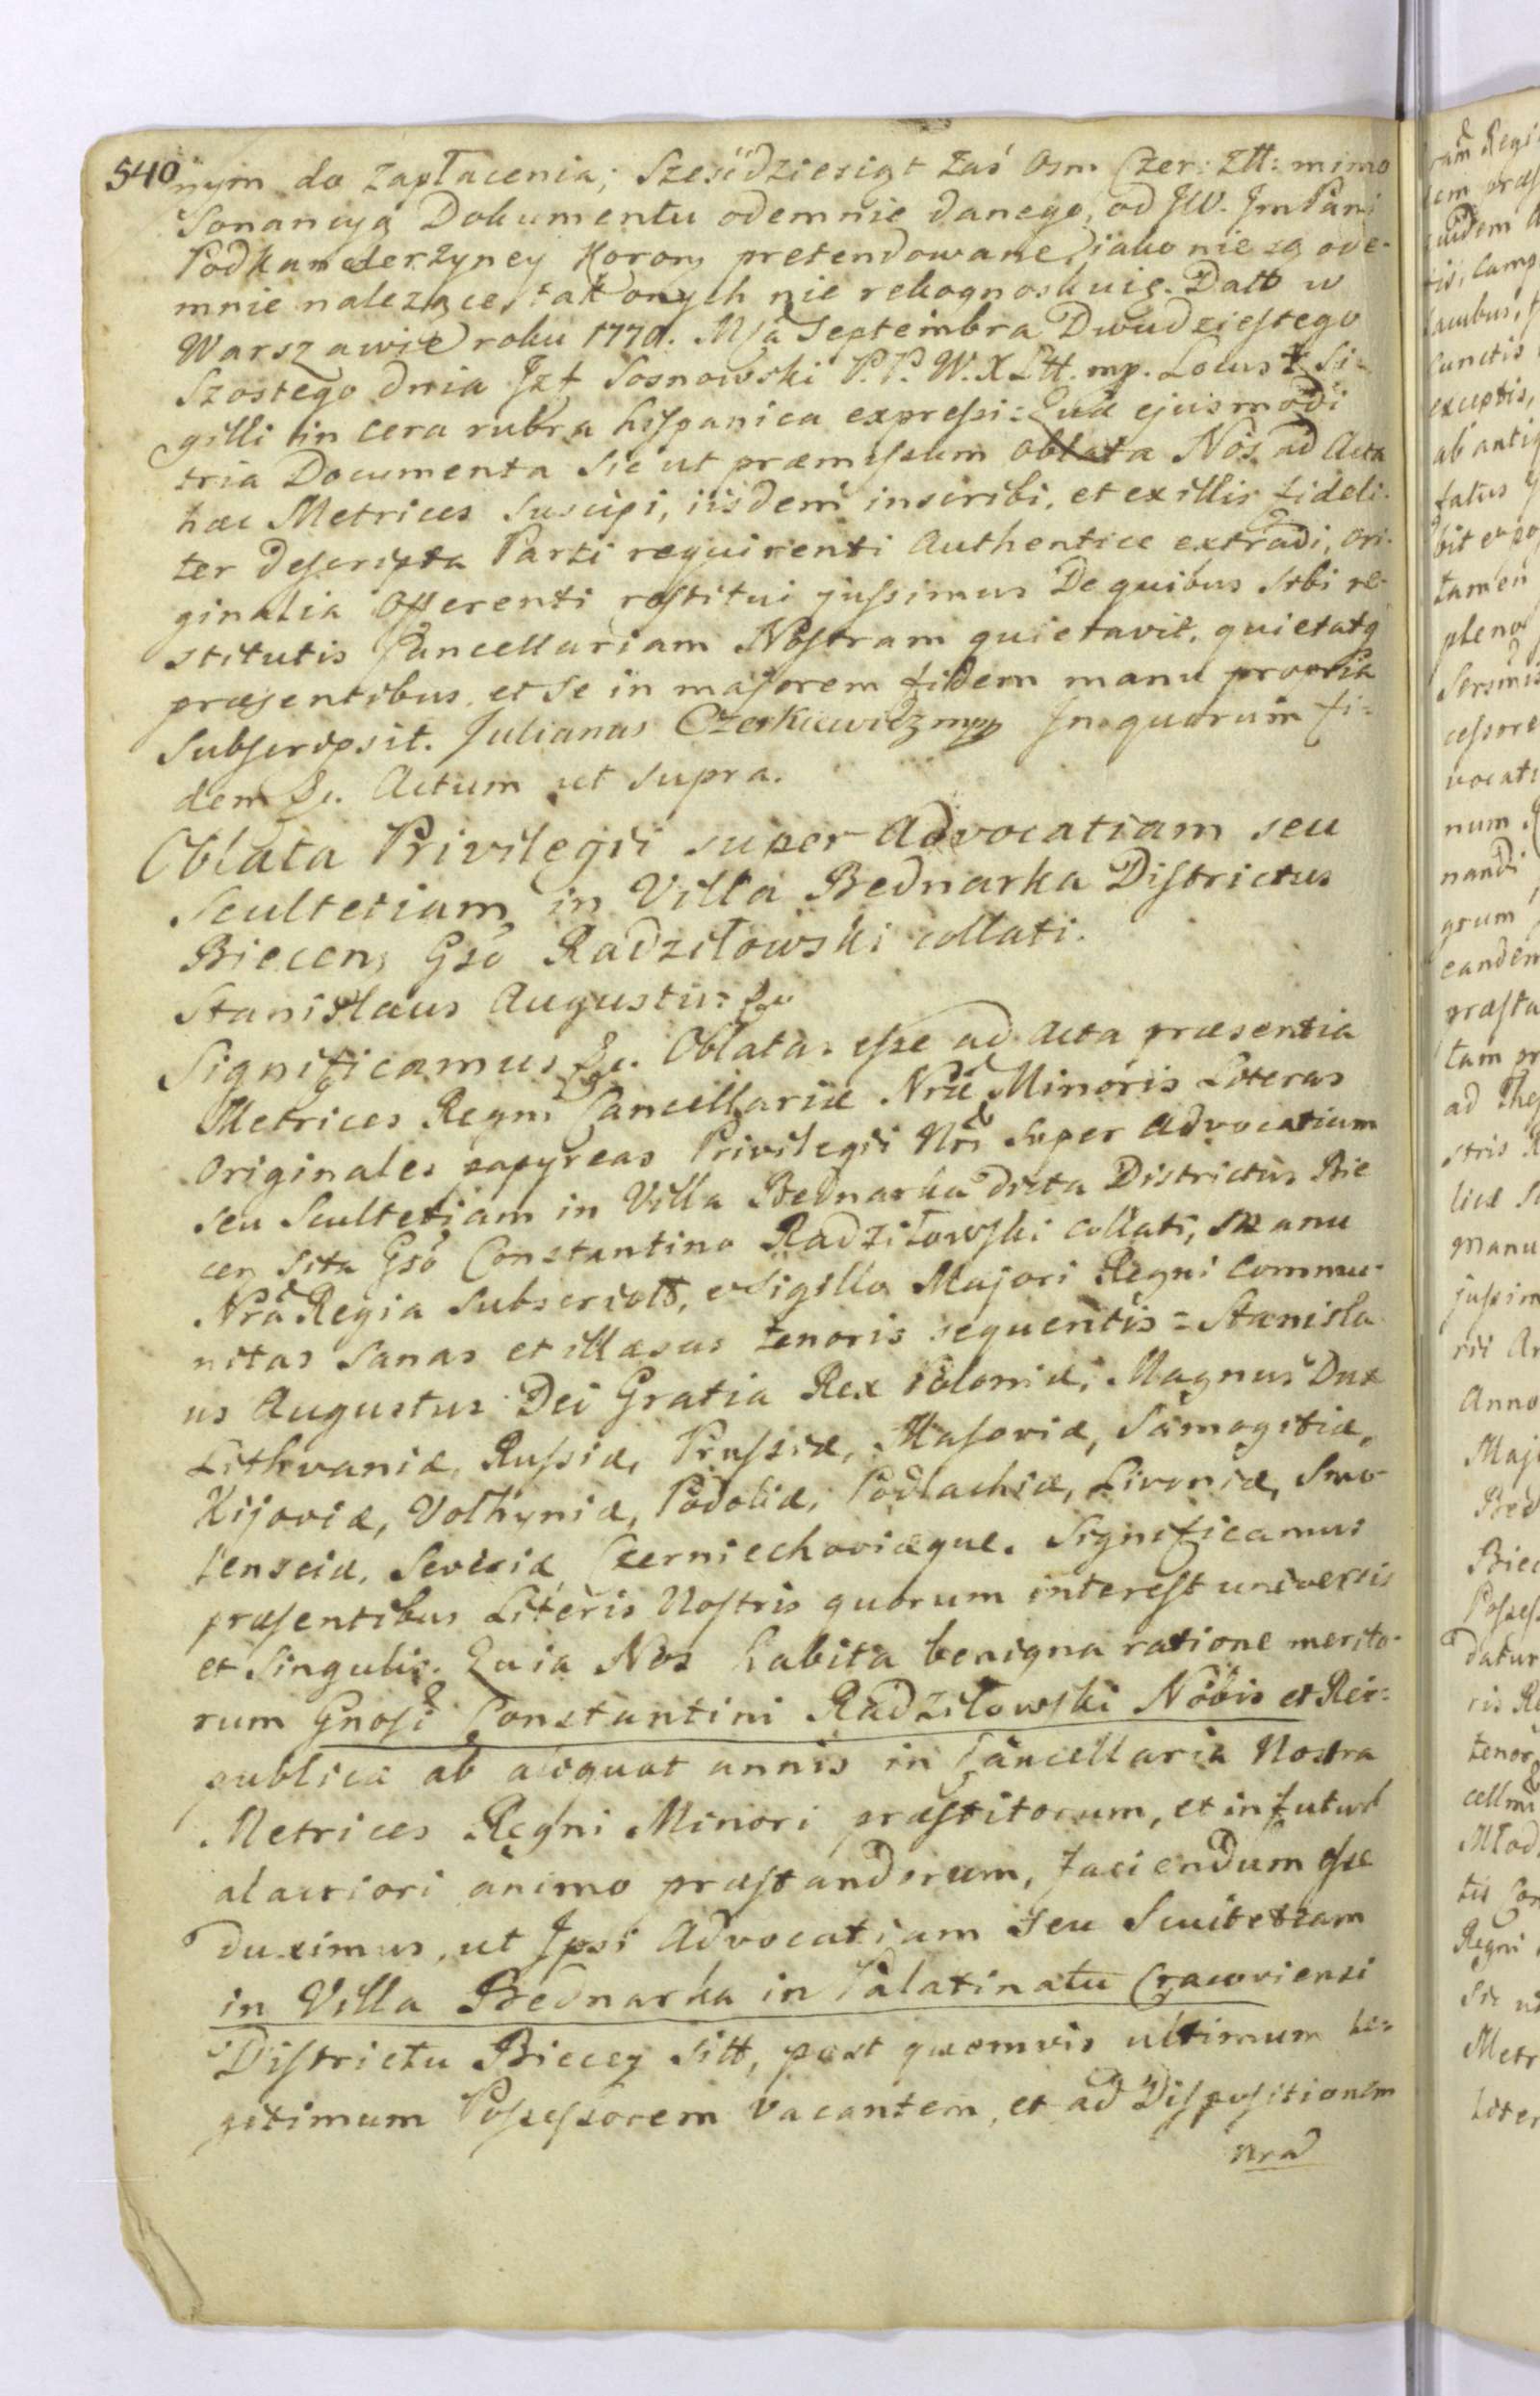 540
nym do zapłacenia; Sześćdziesiąt zaś Osm Czer: Ztt: mimo
Sonancyą Dokumentu odemnie danego, od JW. Jm Pani
Podkanclerzyney Korony pretendowane, iako nie są ode-
mnie nalezące, tak onych nie rekognoskuię. Datt w
Warszawie roku 1770. Msa Septembra Dwudziestego
Szostego dnia Jzf Sosnowski P. P. W. X Ltt. mp. Locus Si-
gilli in cera rubra hispanica expressi = Quæ ejusmodi
tria Documenta sic ut præmissum oblata Nos ad Acta
hæc Metrices suscipi, iisdem inscribi, et ex illis fideli-
ter descripta Parti requirenti Authentice extradi, ori-
ginalia Offerenti restitui jussimus De quibus sibi re-
stitutis Cancellariam Nostram quietavit, quietatq
præsentibus, et se in majorem fidem manu propria
subscripsit. Julianus Czerkiewicz mpp In quorum fi-
dem &c. Actum ut supra.
Oblata Privilegii super Advocatiam seu
Scultetiam in Villa Bednarka Districtus
Biecen, Gso Radziłowski collati.
Stanislaus Augustus &c
Significamus &c. Oblatas esse ad Acta præsentia
Metrices Regni Cancellariæ Nræ Minoris Literas
Originales papyreas Privilegii Nri super Advocatiam
seu Scultetiam in Villa Bednarka dicta Districtus Bie
cen sita Gso Constantino Radziłowski collati, Manu
Nra Regia Subscriptt, et Sigillo Majori Regni Commu-
nitas Sanas et illæsas tenoris sequentis = Stanisla
us Augustus Dei Gratia Rex Poloniæ, Magnus Dux
Lithvaniæ, Russiæ, Prussiæ, Masoviæ, Samogitiæ,
Kijoviæ, Volhyniæ, Podoliæ, Podlachiæ, Livoniæ, Smo-
lensciæ, Severiæ, Czerniechoviæque. Significamus
præsentibus Literis Nostris quorum interest universis
et singulis. Quia Nos habita benigna ratione merito-
rum Gnosi Constantini Radziłowski Nobis et Rei-
publicæ ab aliquot annis in Cancellaria Nostra
Metrices Regni Minori præstitorum, et in futur
alacriori animo præstandorum, faciendum esse
duximus, ut Ipsi Advocatiam seu Scultetiam
in Villa Bednarka in Palatinatu Cracoviensi
Districtu Biecen sitt, post quemvis ultimum le-
gitimum Possessorem vacantem, et ad Dispositionem
nra